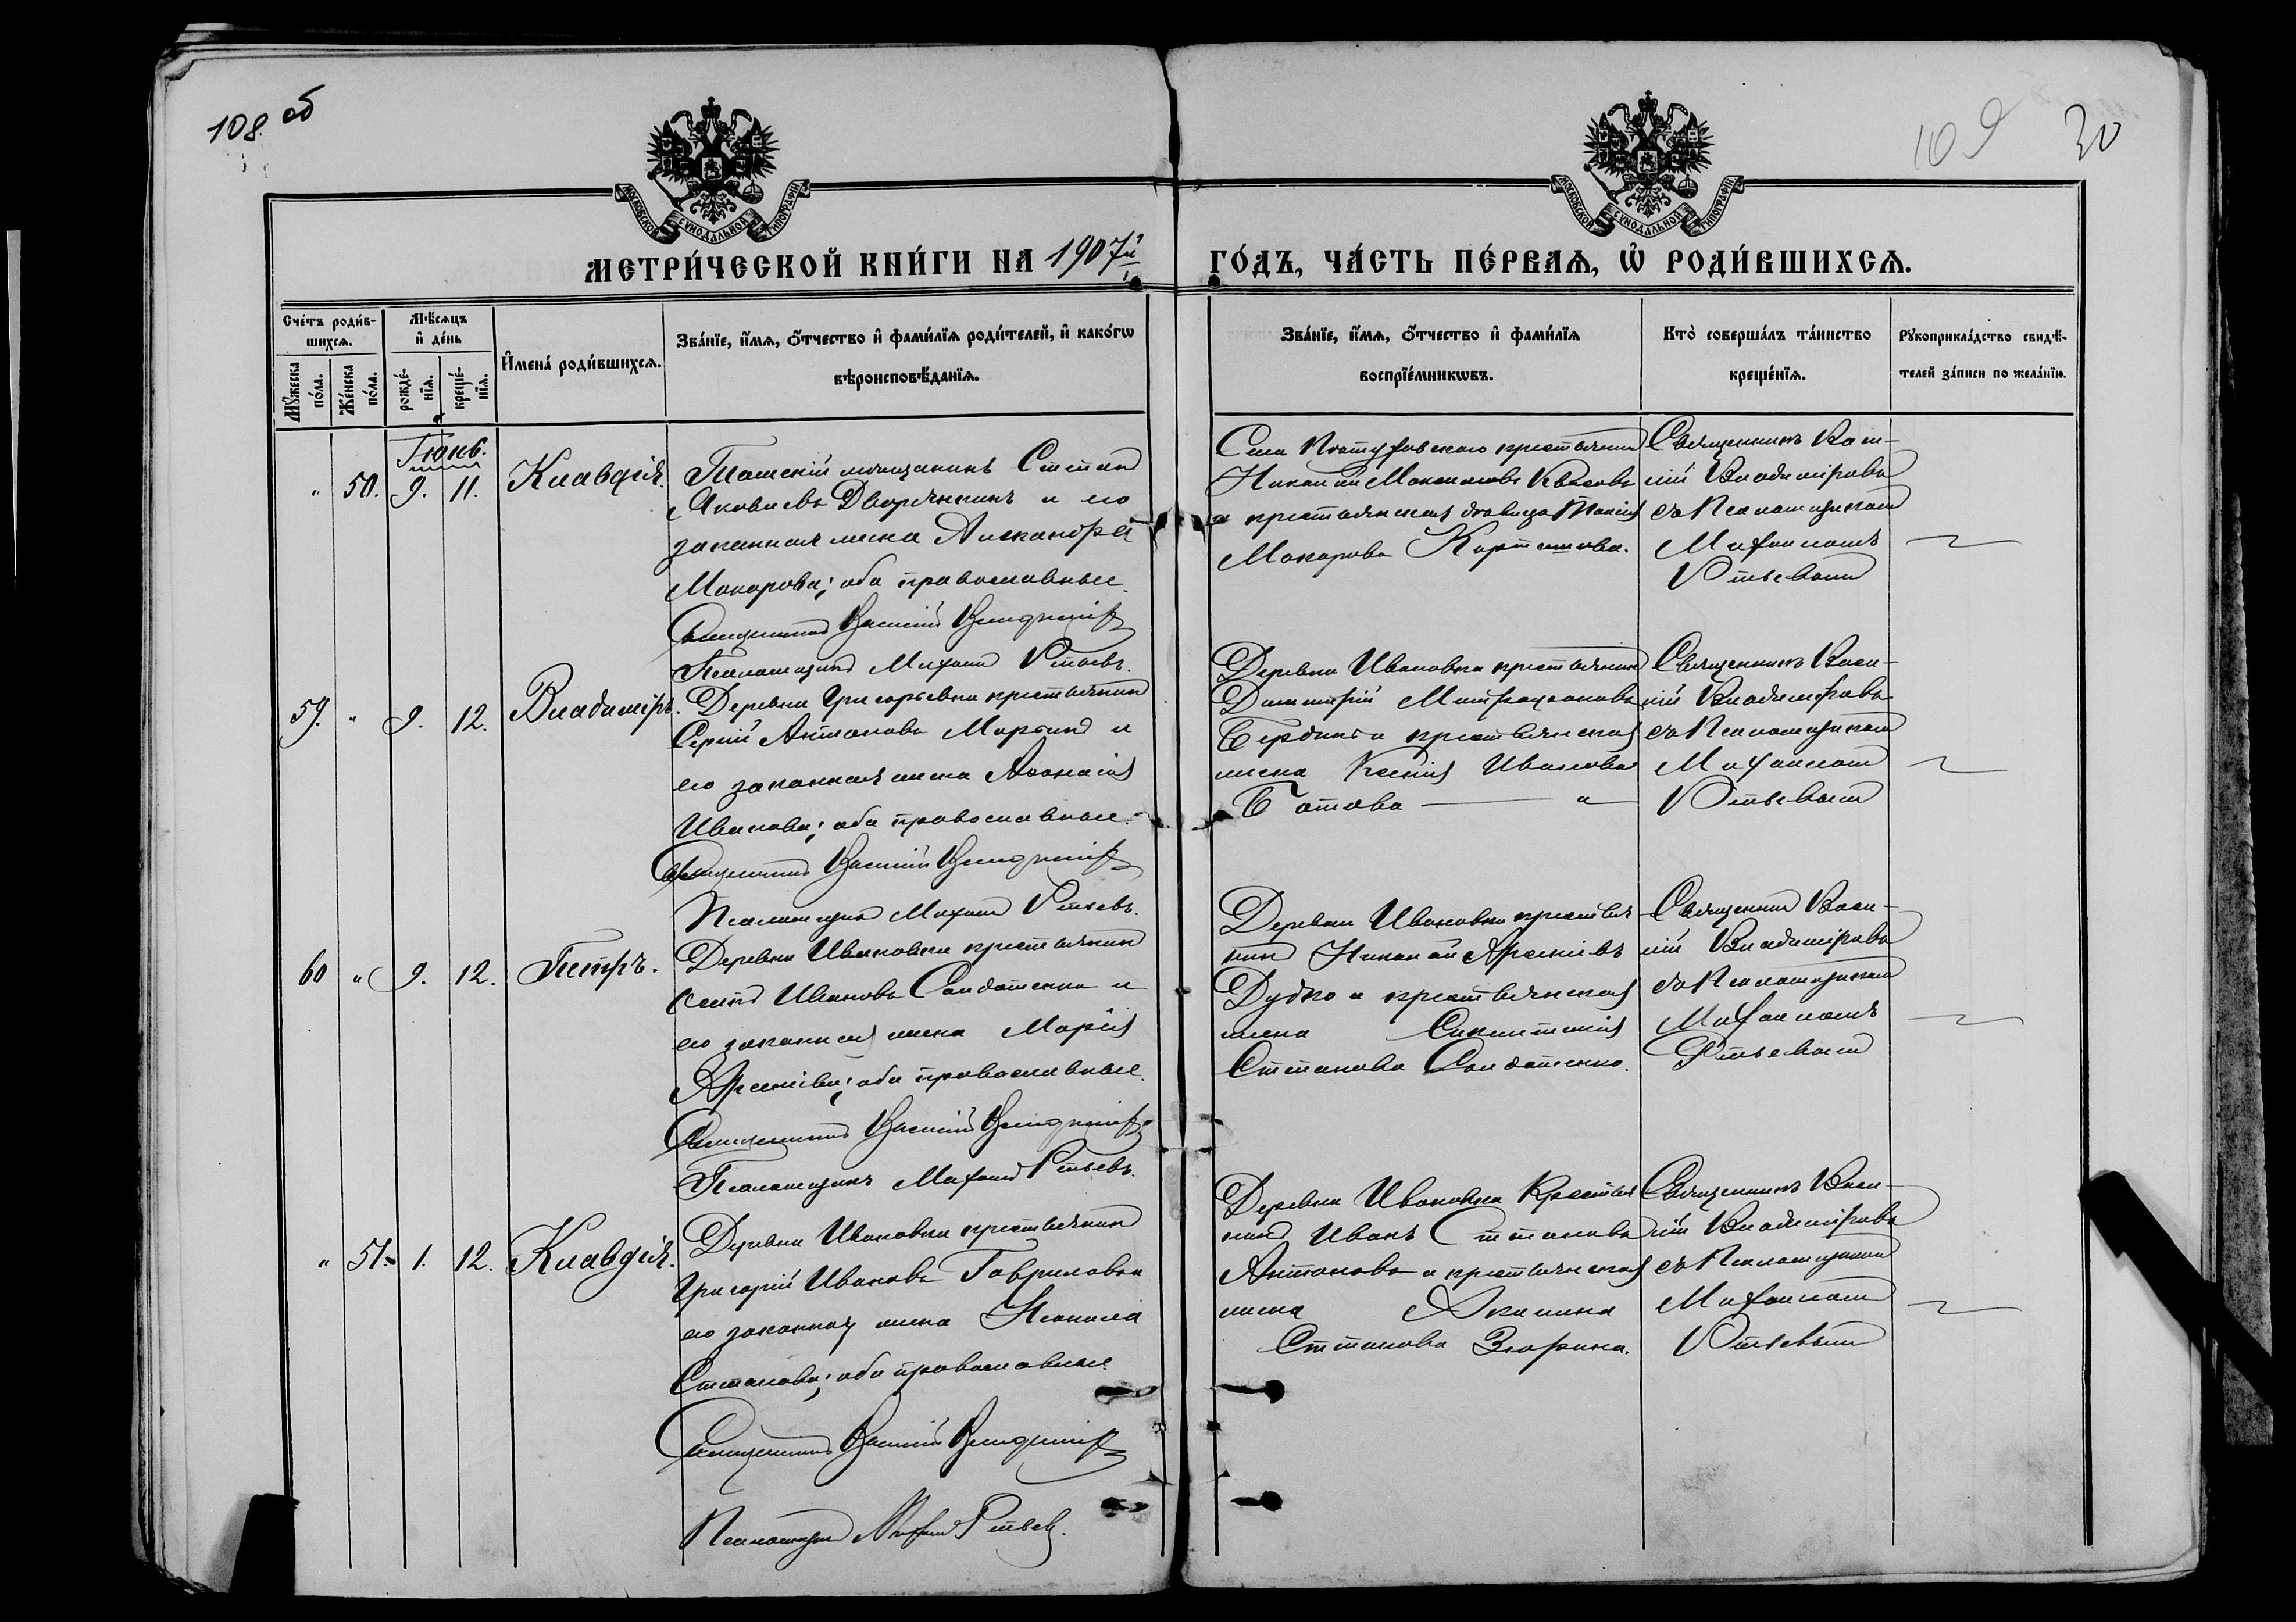 108 об
109 30
МОСКОВСКОЙ СѴНОДАЛЬНОЙ ТИПОГРАФІИ
МОСКОВСКОЙ СѴНОДАЛЬНОЙ ТИПОГРАФІИ
МЕТРИ́ЧЕСКОЙ КНИ́ГИ НА 1907й ГО́ДЪ, ЧА́СТЬ ПЕ́РВАѦ, Ѡ҆ РОДИ́ВШИХСѦ.
Сче́тъ роди́в-
шихсѧ.
Мꙋ́жеска
по́ла.
Же́нска
по́ла.
Мѣ́сѧцъ
и҆ де́нь
рожде́-
нїѧ.
креще́-
нїѧ.
И҆мена̀ роди́вшихсѧ.
Зва́нїе, и҆́мѧ, ѻ҆́тчество и҆ фами́лїѧ роди́телей, и҆ како́гѡ
вѣроисповѣ́данїѧ.
Зва́нїе, и҆́мѧ, ѻ҆́тчество и҆ фами́лїѧ
воспрїе́мникѡвъ.
Кто̀ соверша́лъ та́инство
креще́нїѧ.
Рꙋкоприкла́дство свидѣ́-
телей за́писи по жела́нїю.
Іюнь.
" 50. 9. 11. Клавдія.
Томскій мѣщанинъ Степанъ
Яковлевъ Дворянкинъ и его
законная жена Александра
Макарова; оба православные.
Священникъ Василій Владиміровъ
Псаломщикъ Михаилъ
Села крестьянинъ
Николай Максимовъ Квасовъ
и крестьянская дѣвица Таисія
Макарова Карташова.
Священникъ Васи-
лій Владиміровъ
съ Псаломщикомъ
Михаиломъ
59. " 9. 12. Владиміръ.
Деревни Григорьевки крестьянинъ
Сергій Антоновъ Марьинъ и
его законная жена Аѳанасія
Иванова; оба православные.
Священникъ Василій Владиміровъ
Псаломщикъ Михаилъ
Деревни Ивановки крестьянинъ
Димитрій Митрофановъ
и крестьянская
жена Ксенія Иванова
Ботова
Священникъ Васи-
лій Владиміровъ
съ Псаломщикомъ
Михаиломъ
60 " 9. 12. Петръ.
Деревни Ивановки крестьянинъ
Осипъ Ивановъ Солдатенко и
его законная жена Марія
Арсеніева; оба православные.
Священникъ Василій Владиміровъ
Псаломщикъ Михаилъ
Деревни Ивановки крестья-
нинъ Николай Арсеніевъ
Дудко и крестьянская
жена
Степанова Солдатенко.
Священникъ Васи-
лій Владиміровъ
съ Псаломщикомъ
Михаиломъ
" 51. 1. 12. Клавдія.
Деревни Ивановки крестьянинъ
Григорій Ивановъ Гавриловъ и
его законная жена Неонила
Степанова; оба православные.
Священникъ Василій Владиміровъ
Псаломщикъ Михаилъ
Деревни Ивановки Крестья-
нинъ Иванъ Степановъ
Антоновъ и крестьянская
жена Акилина
Степанова Зюрина.
Священникъ Васи-
лій Владиміровъ
съ Псаломщикомъ
Михаиломъ